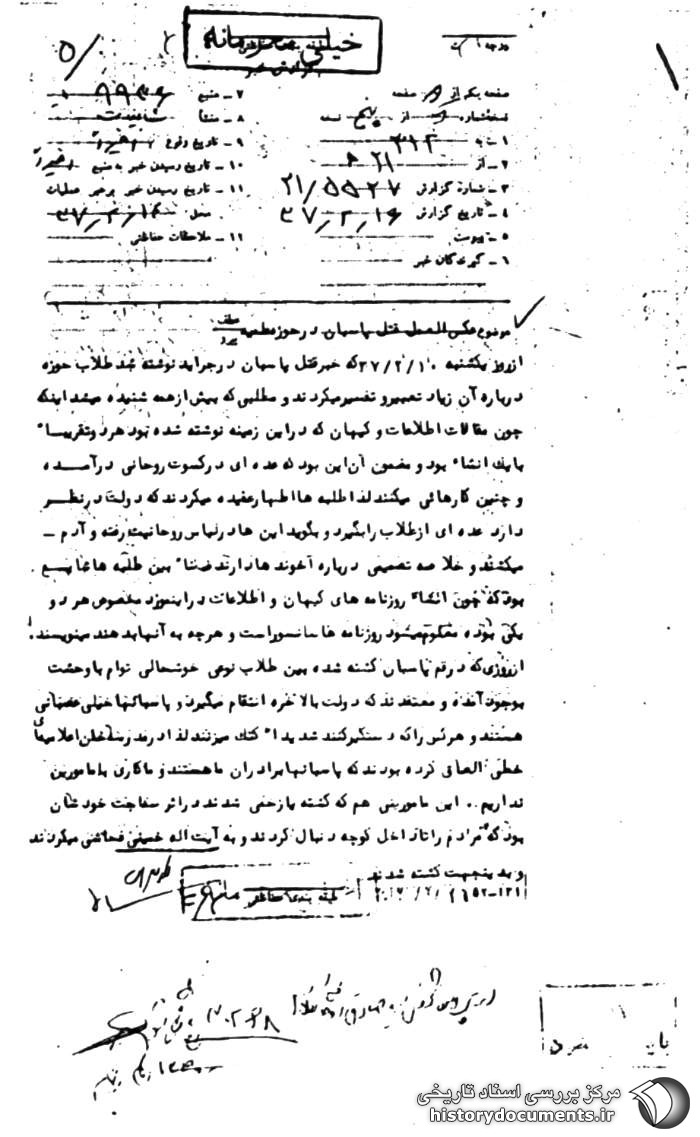 خیلی محرمانه
درجه
صفحه یکم از صفحه
نسخه شماره از پنج نسخه
۱ـ به ۳۱۲
۲ـ از ۲۱
۳ـ شماره گزارش ۲۱/۵۵۲۷
۴ـ تاریخ گزارش ۳۷/۲/۱۶
۵ـ پیوست
۶ـ گیرندگان خبر
۷ـ منبع
۸ـ منشأ
۹ـ تاریخ وقوع اخیراً
۱۰ـ تاریخ رسیدن خبر به منبع اخیراً
۱۱ـ تاریخ رسیدن خبر برهبر عملیات
محل ۳۷/۲/۱۶
۱۲ـ ملاحظات حفاظتی
موضوع عکس العمل قتل پاسبان در حوزه علمیه
از روز یکشنبه ۳۷/۲/۱۰ که خبر قتل پاسبان در جراید نوشته شد طلاب حوزه
درباره آن زیاد تعبیر و تفسیر میکردند و مطلبی که بیش از همه شنیده میشد اینکه
چون مقالات اطلاعات و کیهان که در این زمینه نوشته شده بود هر دو تقریباً
با یک انشاء بود و مضمون آن این بود که عده ای در کسوت روحانی در آمده
و چنین کارهائی میکنند لذا طلبه ها اظهار عقیده میکردند که دولت در نظر
دارد عده ای از طلاب را بگیرد و بگوید این ها در لباس روحانیت رفته و آدم ـ
میکشند و خلاصه تصمیمی درباره آخوند ها دارند ضمناً بین طلبه ها شایع
بود که چون انشاء روزنامه های کیهان و اطلاعات در اینمورد مخصوص هر دو
یکی بوده معلوم میشود روزنامه ها سانسور است و هر چه به آنها بدهند مینویسند.
از روزی که در قم پاسبان کشته شده بین طلاب نوعی خوشحالی توام با وحشت
بوجود آمده و معتقدند که دولت بالاخره انتقام میگیرد و پاسبانها خیلی عصبانی
هستند و هر کس را که دستگیر کنند شدیداً کتک میزنند لذا در مدرسه خان اعلامیه‌ای
خطی الصاق کرده بودند که پاسبانها برادران ما هستند و ما کاری با مامورین
نداریم .. این مامورینی هم که کشته یا زخمی شدند در اثر سماجت خودشان
بود که مردم را تا داخل کوچه دنبال کردند و به آیت اله خمینی فحاشی میکردند
و بدینجهت کشته شدند
طبقه بندی حفاظتی
مرکز بررسی اسناد تاریخی
historydocuments.ir